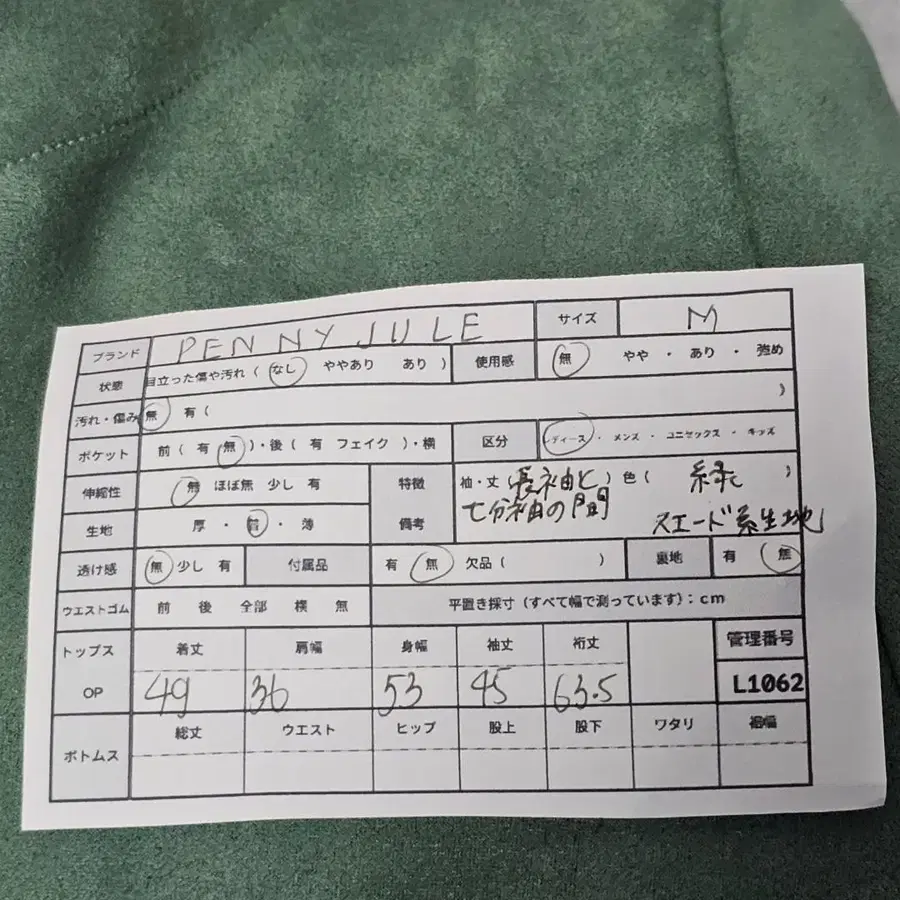 ブランド PENNY JULE サイズ M
状態 目立った傷や汚れ ( なし ややあり あり ) 使用感 無 やや ・ あり ・ 強め
汚れ・傷み 無 有 ( )
ポケット 前 ( 有 無 )・後 ( 有 フェイク )・横 区分 レディース ・ メンズ ・ ユニセックス ・ キッズ
伸縮性 無 ほぼ無 少し 有 特徴 袖・丈 (長袖と ) 色 ( 緑 )
七分袖の間
生地 厚 ・ 普 ・ 薄 備考 スエード系生地
透け感 無 少し 有 付属品 有 無 欠品 ( ) 裏地 有 無
ウエストゴム 前 後 全部 横 無 平置き採寸 (すべて幅で測っています) : cm
トップス 着丈 肩幅 身幅 袖丈 裄丈 管理番号
OP 49 36 53 45 63.5 L1062
ボトムス 総丈 ウエスト ヒップ 股上 股下 ワタリ 裾幅